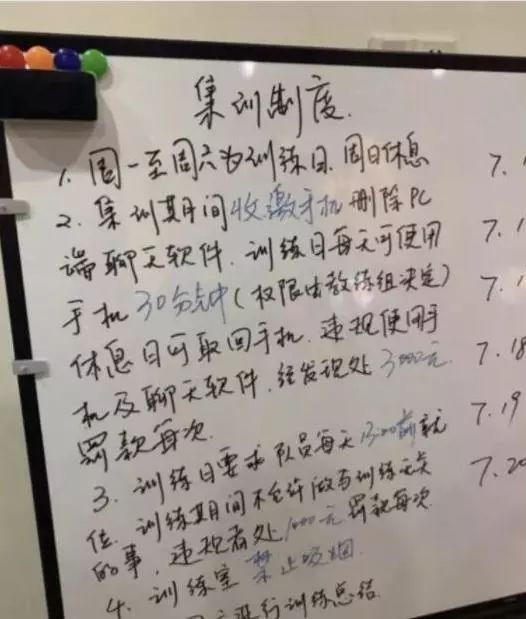 集训制度.
1. 周一至周六为训练日.周日休息
2. 集训期间收缴手机 删除PC
端聊天软件.训练日每天可使用
手机30分钟(权限由教练组决定)
休息日可取回手机.违规使用手
机及聊天软件.经发现处3000元
罚款每次.
3. 训练日要求队员每天13:00前就
位.训练期间不允许做与训练无关
的事,违规者处1000元罚款每次
4. 训练室禁止吸烟.
进行训练总结.
7.1
7.1
7.1
7.18
7.19
7.20